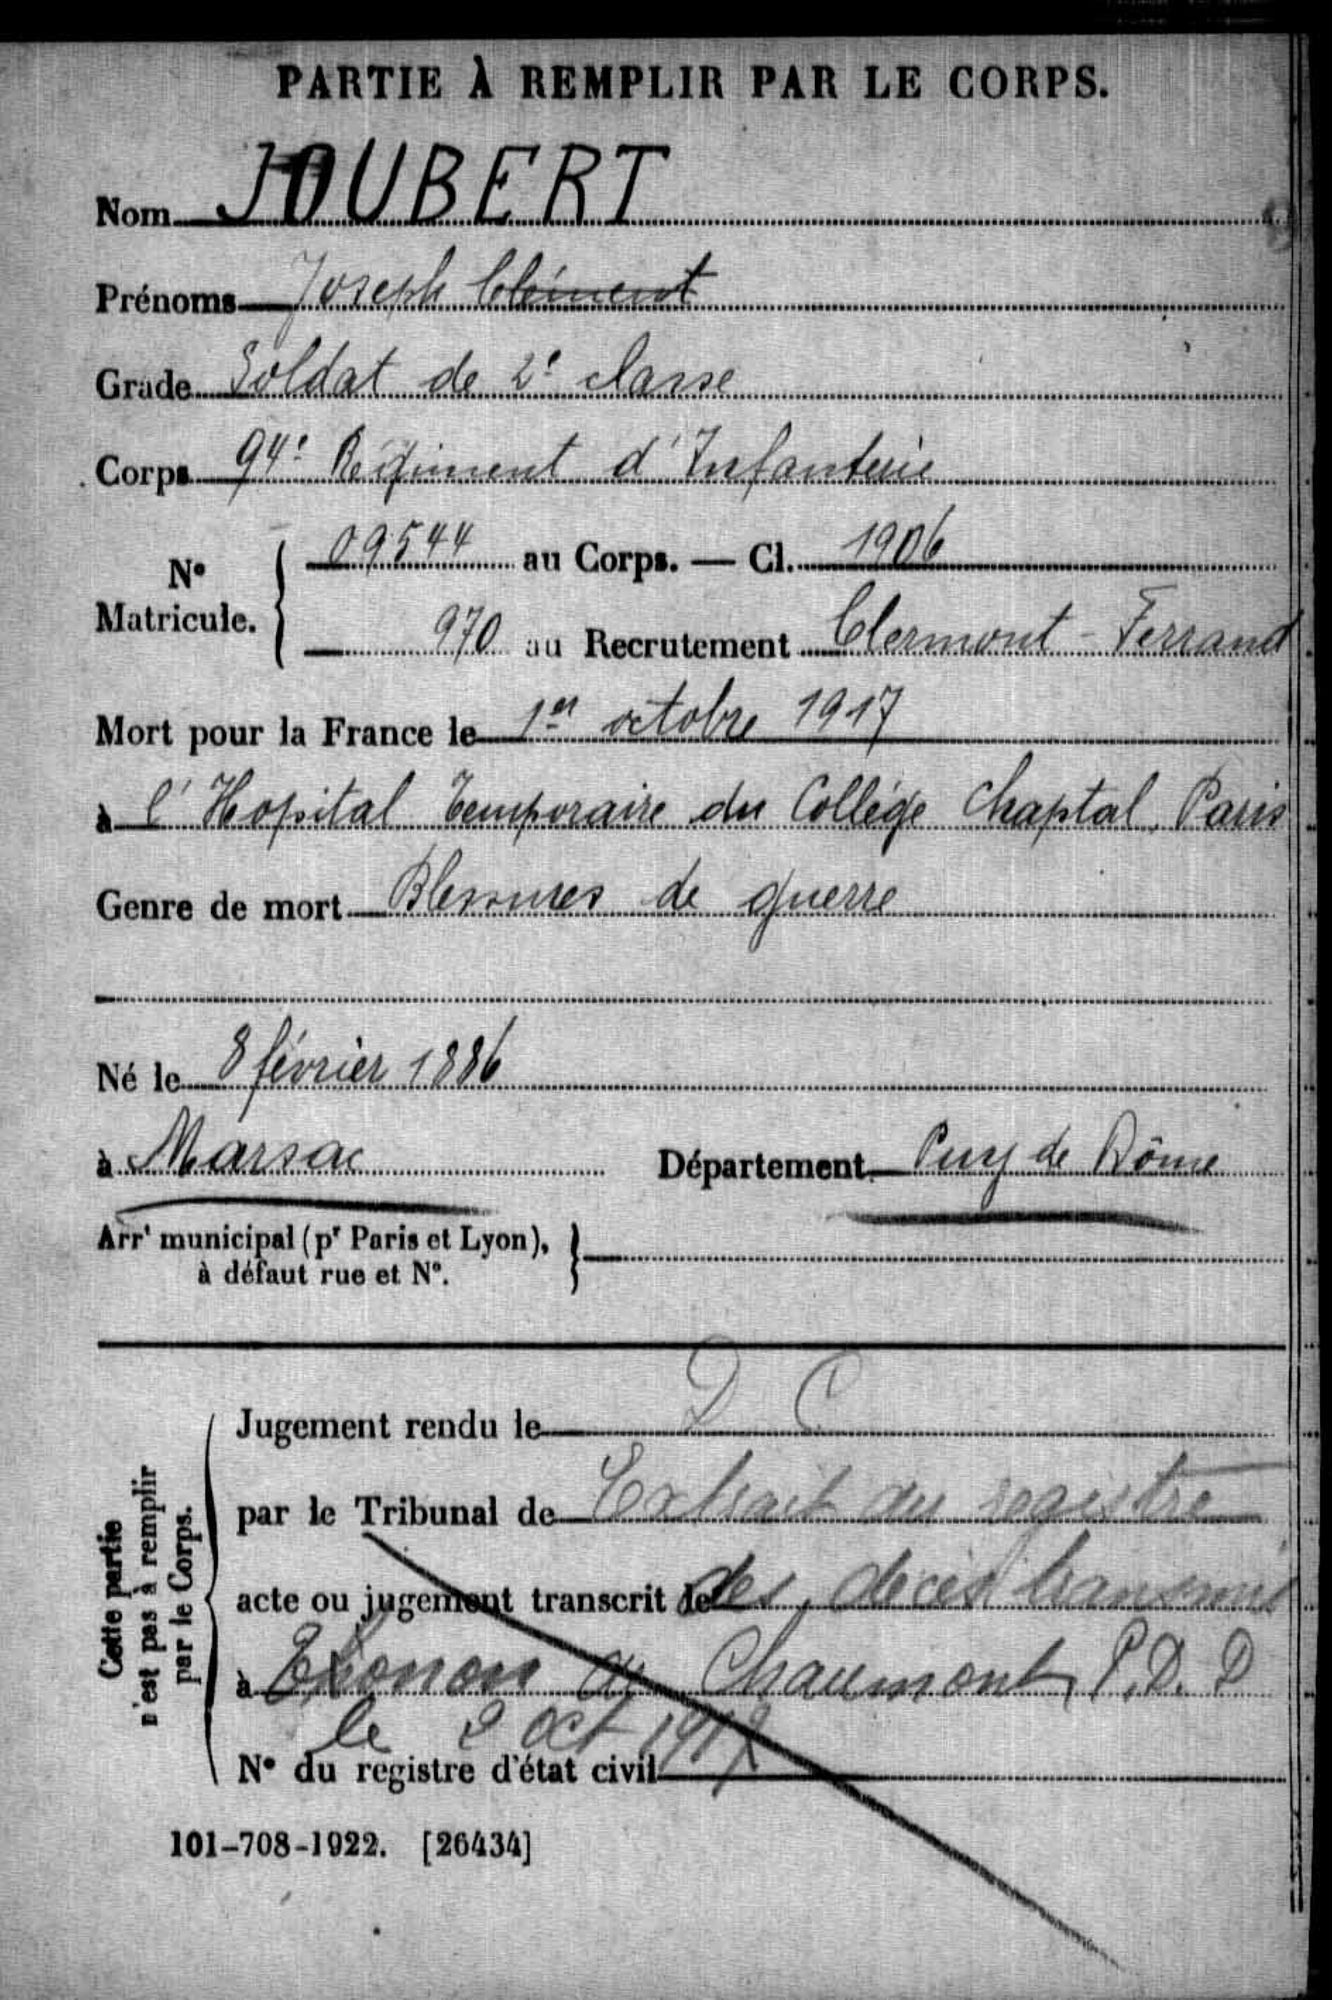 PARTIE À REMPLIR PAR LE CORPS.
Nom JOUBERT
Prénoms Joseph Clément
Grade Soldat de 2e classe
Corps 94e Régiment d'Infanterie
No Matricule. { 09544 au Corps. — Cl. 1906
970 au Recrutement Clermont-Ferrand
Mort pour la France le 1er octobre 1917
à l'Hopital temporaire du Collège Chaptal, Paris
Genre de mort Blessures de guerre
Né le 8 février 1886
à Marsac Département Puy de Dôme
Arrt municipal (pr Paris et Lyon), à défaut rue et No. }
D C
Cette partie n'est pas à remplir par le Corps.
Jugement rendu le
par le Tribunal de Extrait du registre
acte ou jugement transcrit le des décès transmis
à Chaumont P.D.D
le 2 oct 1917
No du registre d'état civil
101-708-1922. [26434]